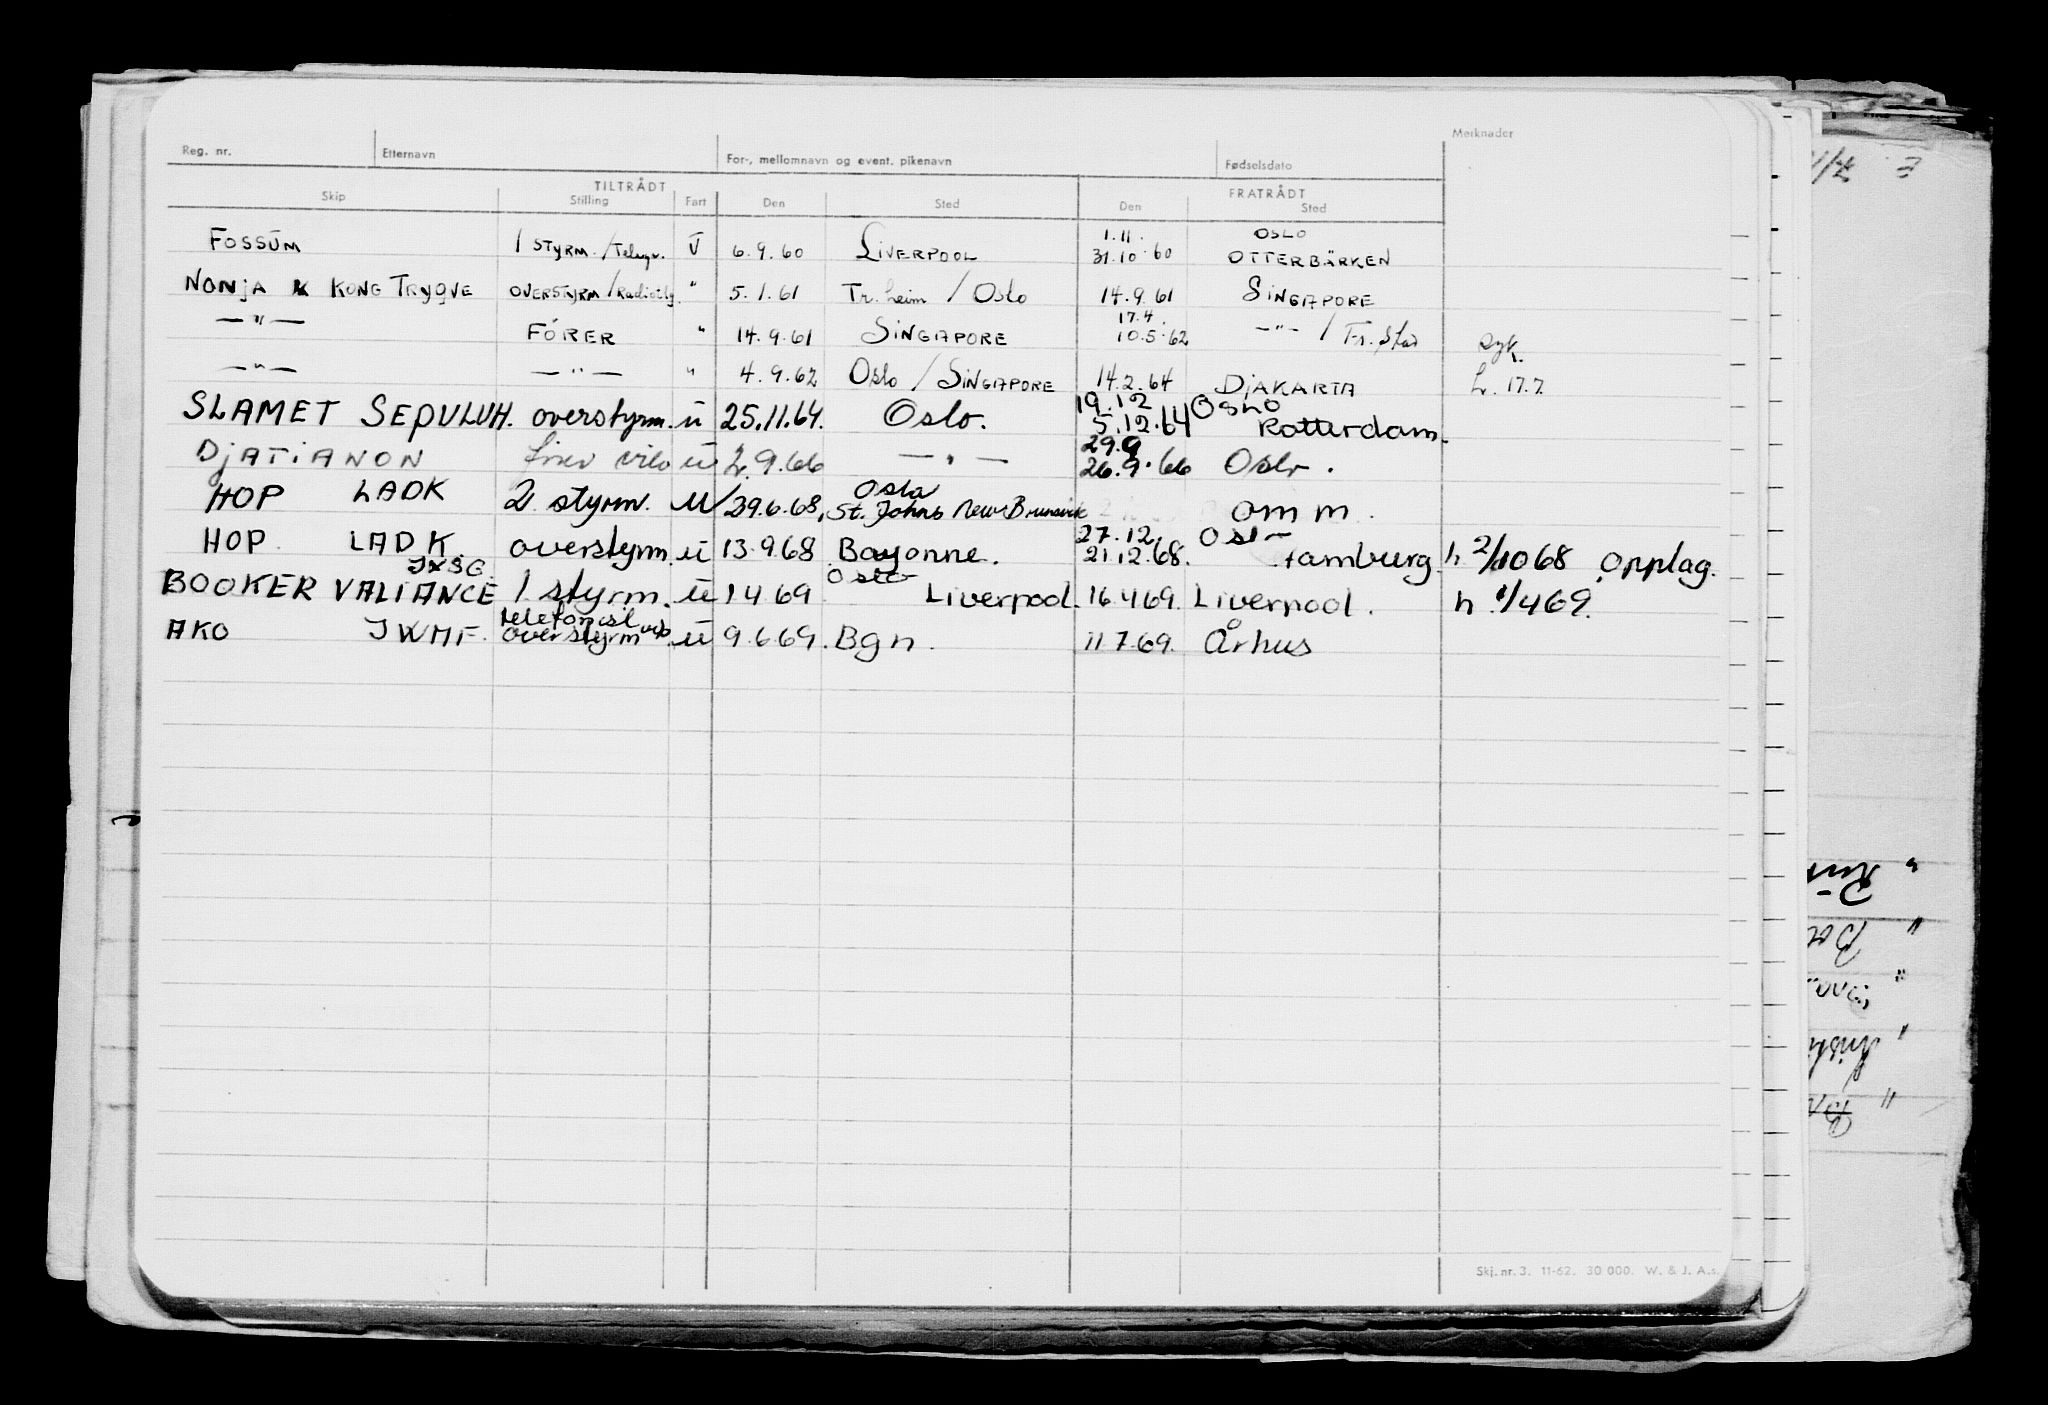 Merknader
Reg. nr. Etternavn For-, mellomnavn og event. pikenavn Fødselsdato
TILTRÅDT FRATRÅDT
Skip Stilling Fart Den Sted Den Sted
1.11. OSLO
FOSSUM 1 STYRM./Telegr. U 6.9.60 LIVERPOOL 31.10.60 OTTERBÄRKEN
NONJA KONG TRYGVE OVERSTYRM/Radiotlg. " 5.1.61 Tr.heim / Oslo 14.9.61 SINGAPORE
17.4.
—"— FÖRER " 14.9.61 SINGAPORE 10.5.62 —"— / Fr.stad syk.
—"— —"— " 4.9.62 Oslo / SINGAPORE 14.2.64 DJAKARTA h. 17.7.
19.12 Oslo
SLAMET SEPULUH. overstyrm. u 25.11.64. Oslo. 5.12.64 Rotterdam.
29.9
DJATIANON u 2.9.66 —"— 26.9.66 Oslo.
Oslo
HOP LADK 2 styrm. u 29.6.68, St. Johns New Brunsvik omm.
27.12. Oslo
HOP. LADK. overstyrm. u 13.9.68 Bayonne. 21.12.68. Hamburg. h 2/10 68 opplag.
JXSG. Oslo
BOOKER VALIANCE 1 styrm. u 1 4 69 Liverpool. 16.4.69. Liverpool. h 1/4 69.
telefonist
AKO JWMF. overstyrm u 9.6.69. Bgn. 11 7.69. Århus
Skj. nr. 3. 11-62. 30 000. W. & J. A.s.